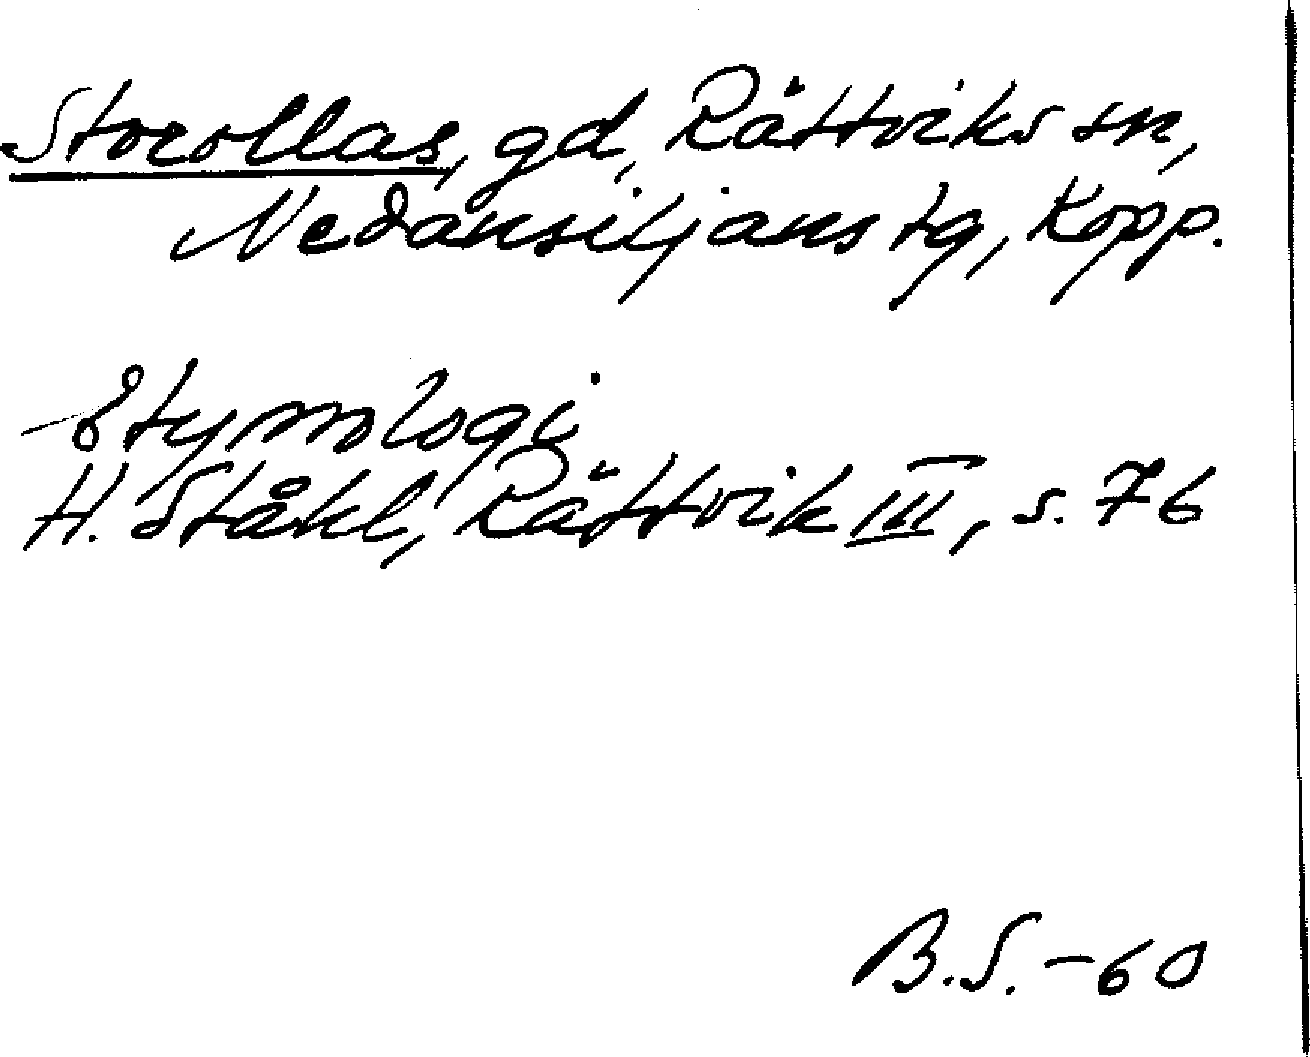 Storollas, gd, Rättviks sn,
Nedansiljans tg, Kopp.
Etymologi
H. Ståhl, Rättvik III, s. 76
B.S.-60